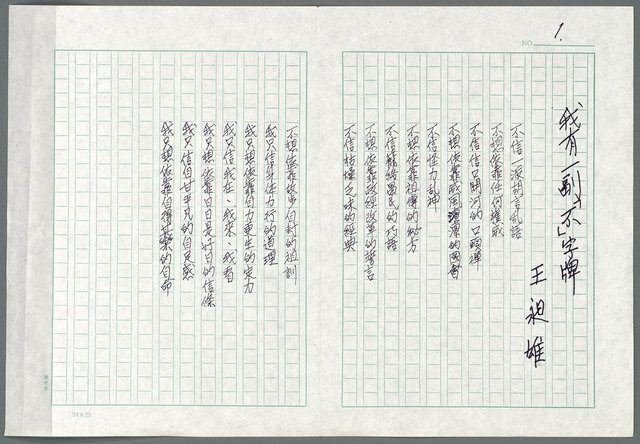 NO. 1.
我有一副「不」字牌
王昶雄
不信一派胡言乱語
不想依靠任何權威
不信信口開河的口頭禪
不想依靠威風凛凛的图騰
不信怪力乱神
不想依靠祖傳的秘方
不信籠絡愚民的巧語
不想依靠政經改革的誓言
不信枯燥乏味的經典
不想依靠故步自封的祖訓
我只信身体力行的道理
我只想依靠自力更生的定力
我只信我在、我來、我看
我只想依靠日日是好日的信條
我只信自甘平凡的自足感
我只想依靠自得其樂的自命
24×25